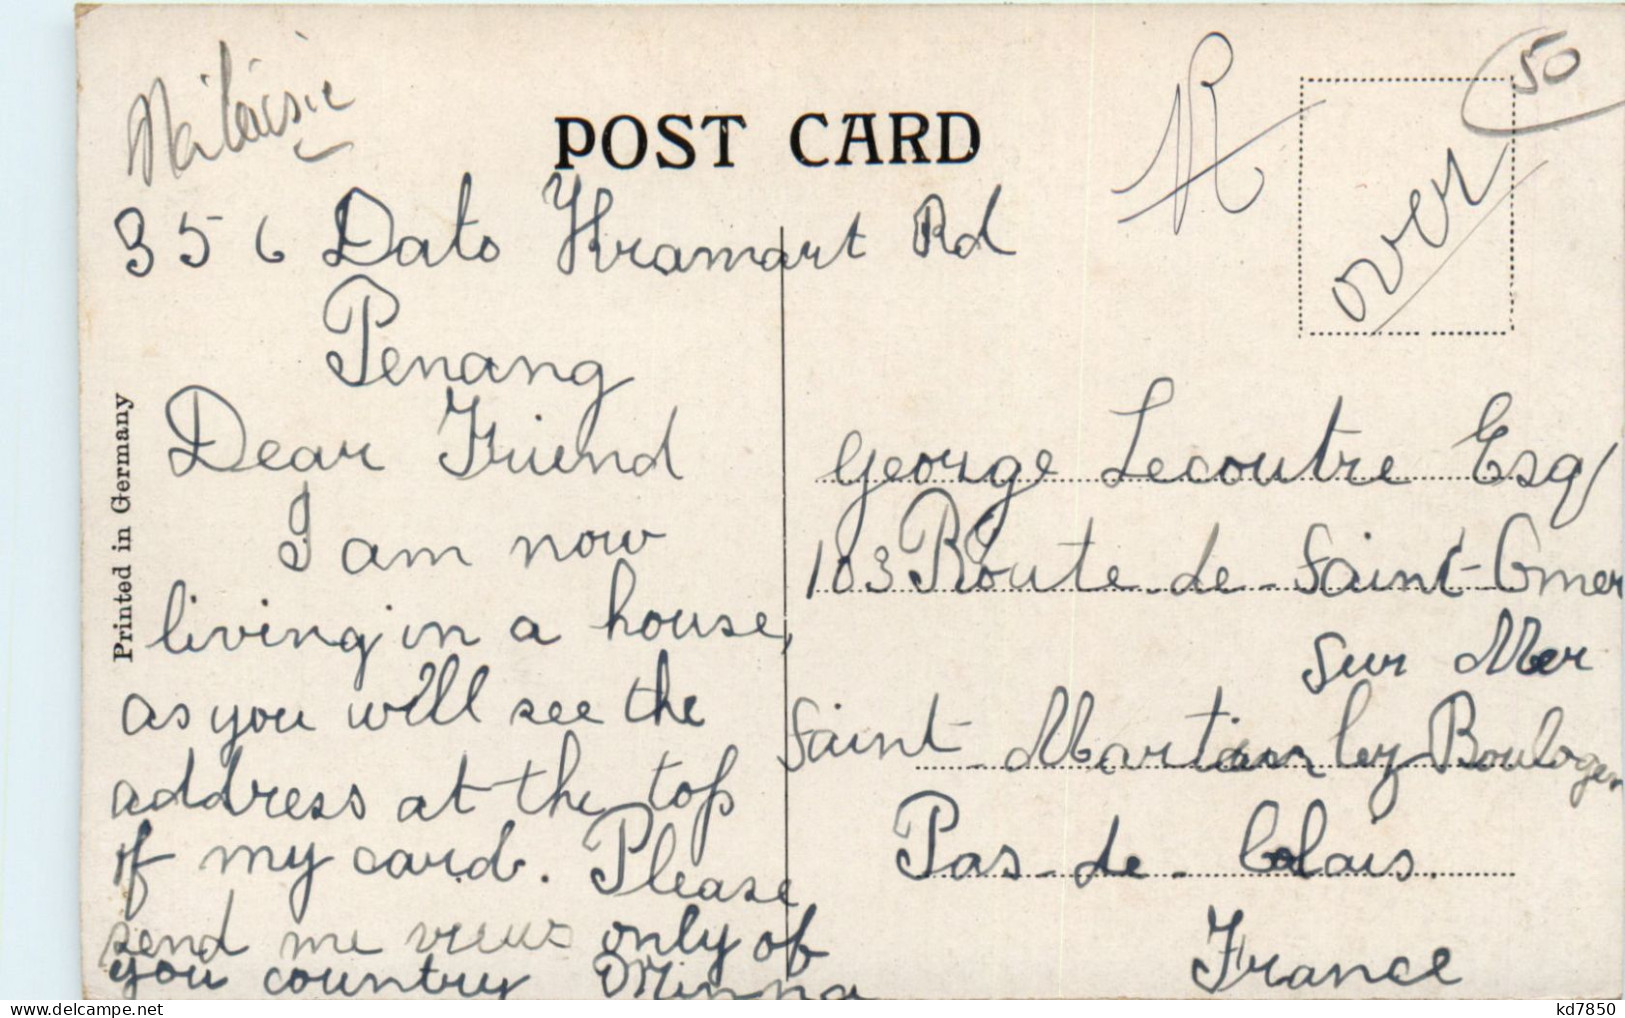 Malaisie
POST CARD
R
50
over
356 Dato Kramart Rd
Penang
Dear Friend
I am now
living in a house,
as you will see the
address at the top
of my card. Please
send me views only of
you country Minna
Printed in Germany
George Lecoutre Esq/
103 Route de Saint-Omer
Sur Mer
Saint Martin ley Boulogen
Pas-de-Calais.
France
kd7850